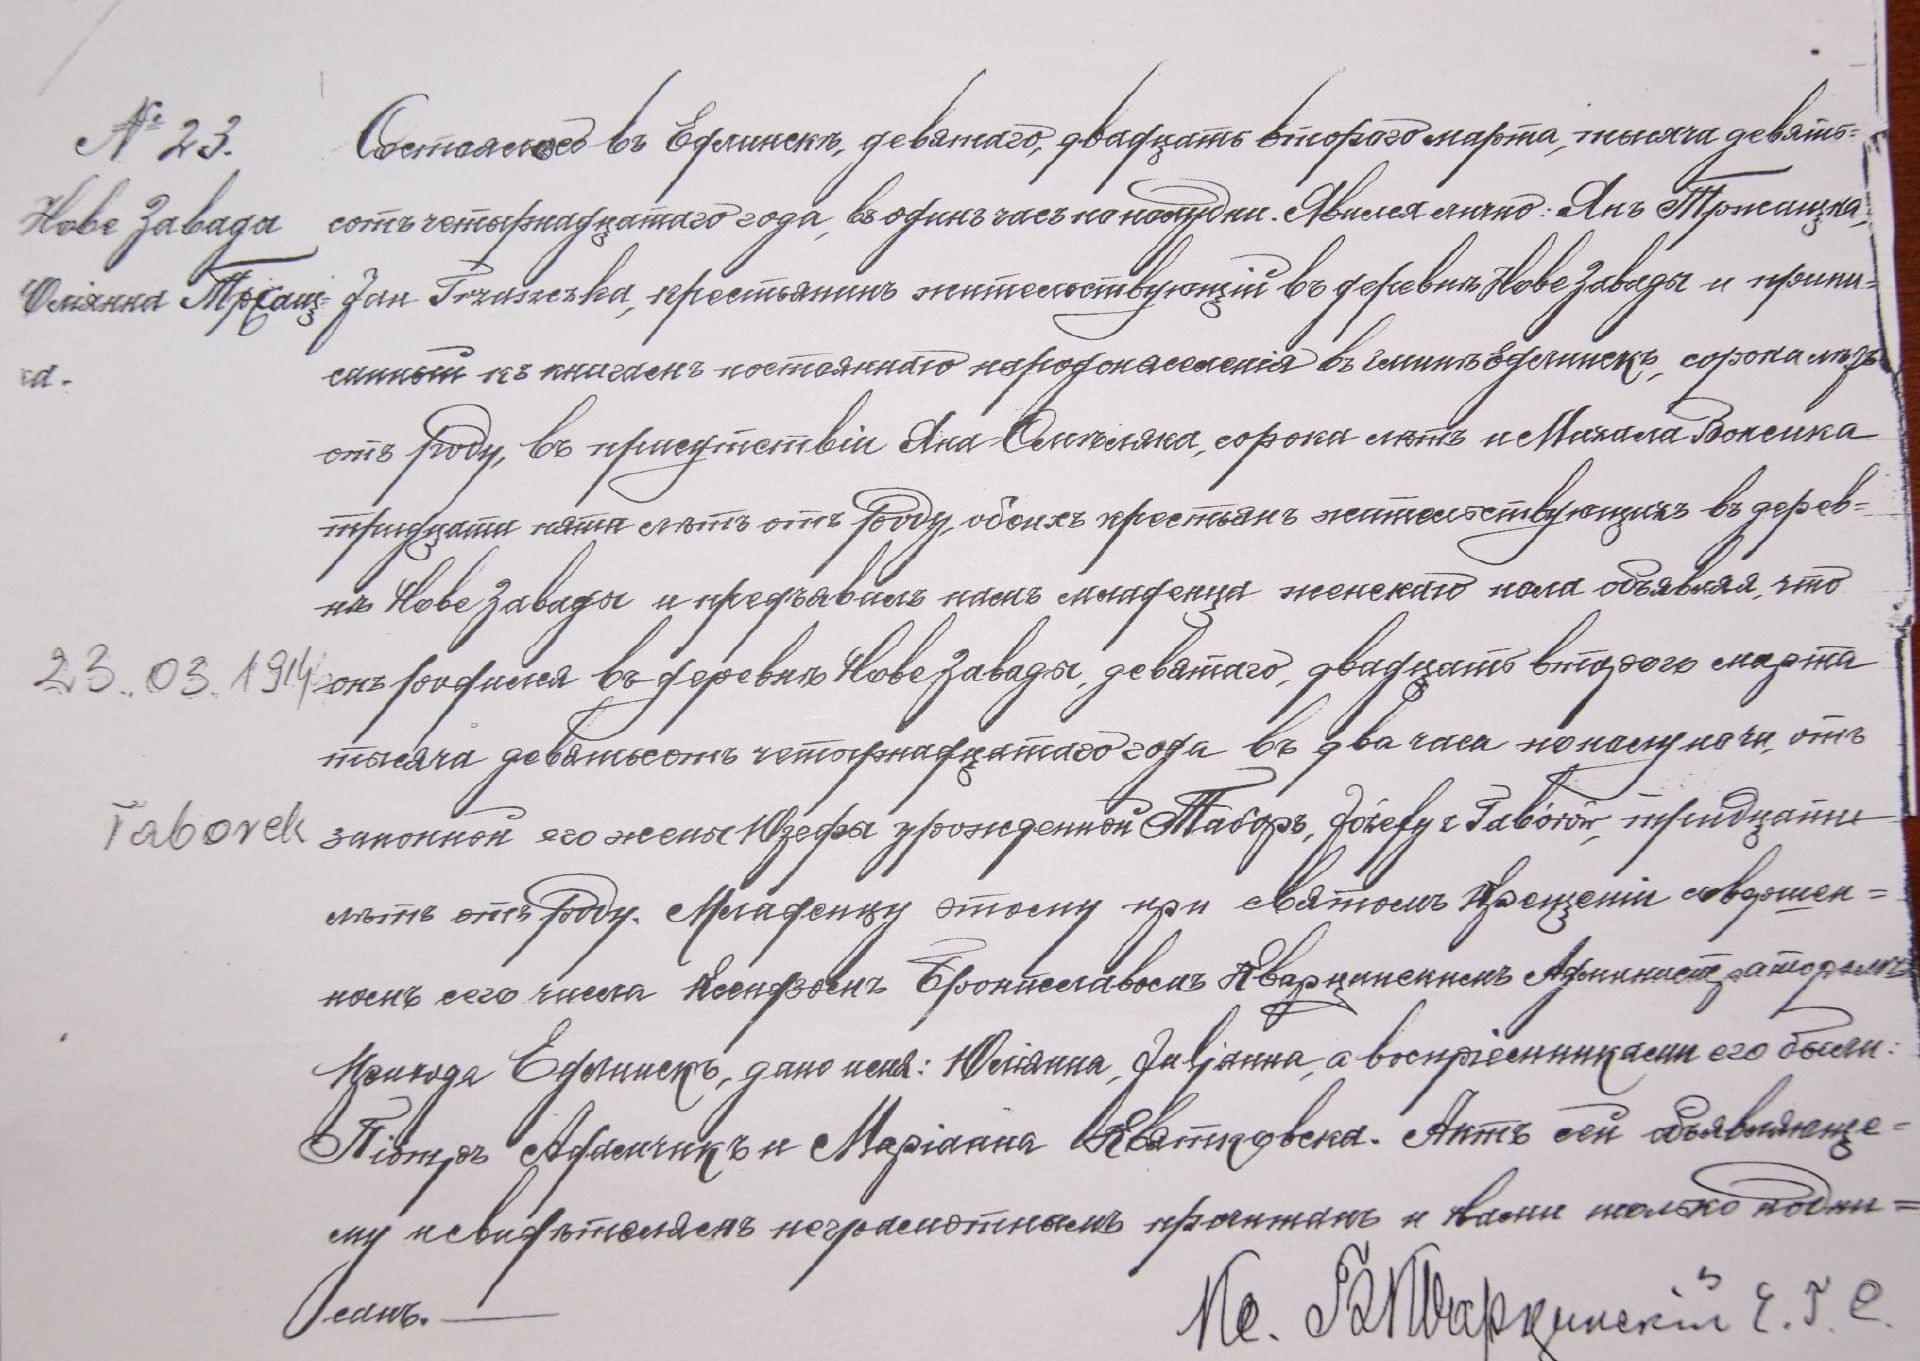 № 23.
Нове Завады
Юліянна Тржащ-
ка.
Состоялось въ Едлинскъ, девятаго, двадцать второго марта, тысяча девять=
сотъ четырнадцатаго года, въ одинъ часъ по полудни. Явился лично: Янъ Тржащка,
Jan Trzaszczka, крестьянинъ жительствующій въ деревнѣ Нове Завады и припи=
санный къ книгамъ постояннаго народонаселенія въ гминѣ Едлинскъ, сорока лѣтъ
отъ роду, въ присутствіи Яна сорока лѣтъ и Михала
тридцати пяти лѣтъ отъ роду, обоихъ крестьянъ жительствующихъ въ дерев=
нѣ Нове Завады и предъявилъ намъ младенца женскаго пола объявляя, что
23.03.1914
онъ родился въ деревнѣ Нове Завады, девятаго, двадцать второго марта
тысяча девятьсотъ четырнадцатаго года въ два часа по полуночи, отъ
Taborek
законной его жены Юзефы урожденной Таборъ, Józefy z Taborów, тридцати
лѣтъ отъ роду. Младенцу этому при святомъ Крещеніи совершен=
номъ сего числа Ксендзомъ Брониславомъ Кварцинскимъ Администраторомъ
Прихода Едлинскъ, дано имя: Юліянна, Juljanna, а воспріемниками его были:
Піотръ Адамчикъ и Маріанна Квятковска. Актъ сей объявляюще=
му и свидѣтелямъ неграмотнымъ прочитанъ и Нами только подпи=
санъ.
Кс. Б Кварцинскій Ч. Г. С.